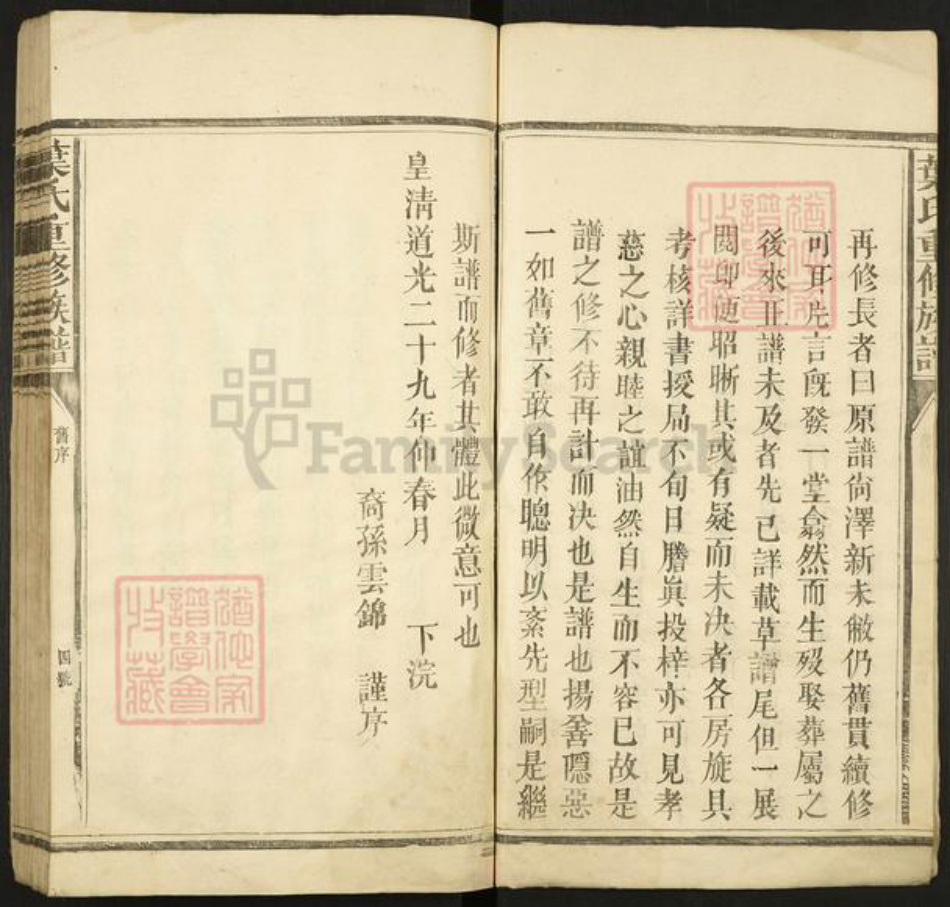 葉氏重修族譜
再修長者曰原譜尙澤新未敝仍舊貫續修
可耳片言旣發一堂翕然而生歿娶葬屬之
後來正譜未及者先已詳載草譜尾但一展
閱卽便昭晰其或有疑而未决者各房旋具
考核詳書授局不旬日謄眞投梓亦可見孝
慈之心親睦之誼油然自生而不容已故是
譜之修不待再計而决也是譜也揚善隱惡
一如舊章不敢自作聰明以紊先型嗣是繼
斯譜而修者其體此微意可也
皇淸道光二十九年仲春月 下浣
裔孫雲錦 謹序
葉氏重修族譜
舊序
四號
猶他家
譜學會
收藏
猶他家
譜學會
收藏
FamilySearch